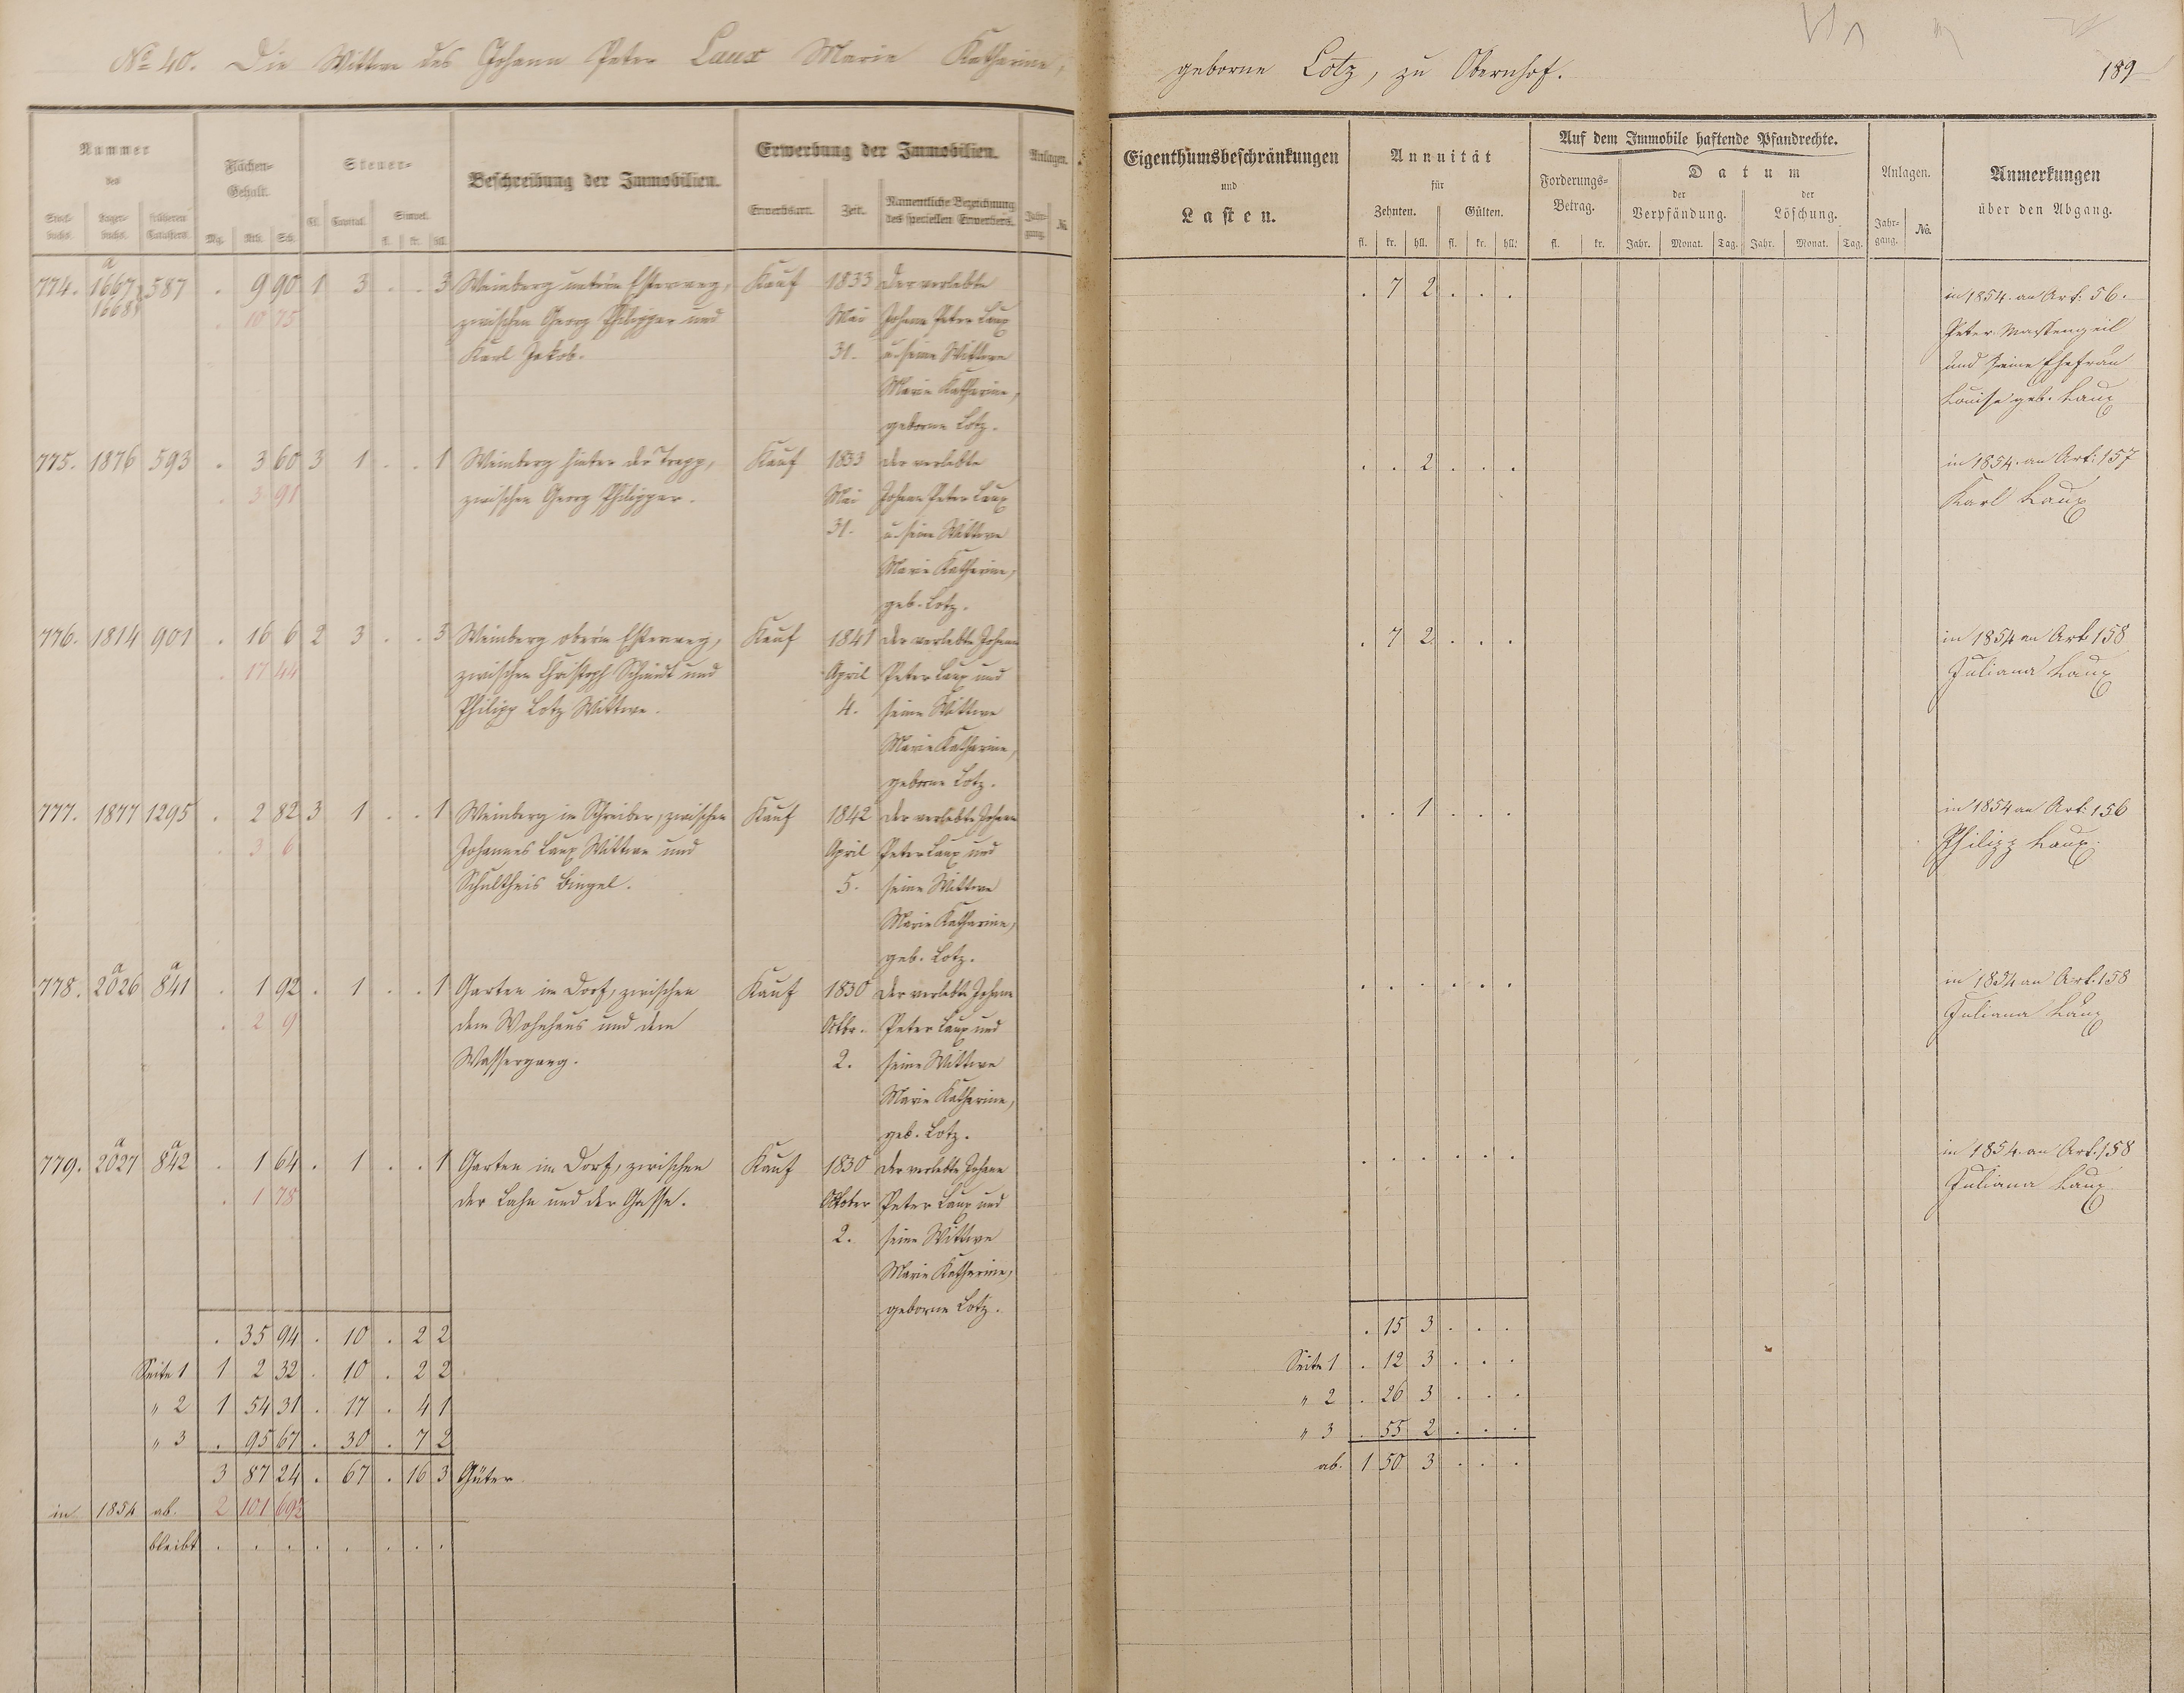 No 40. Die Wittwe des Johann Peter Laux Marie Katharine,
geborne Lotz, zu Obernhof.
189
Nummer
des
Stock-
buchs.
Lager-
buchs.
früheren
Catasters.
Flächen-
Gehalt.
Mg. Rth. Sch.
Steuer-
Cl. Capital. Simpel.
fl. kr. hll.
Beschreibung der Immobilien.
Erwerbung der Immobilien.
Erwerbsart. Zeit. Namentliche Bezeichnung
des speciellen Erwerbers.
Anlagen.
Jahr-
gang. No.
Eigenthumsbeschränkungen
und
Lasten.
Annuität
für
Zehnten. Gülten.
fl. kr. hll. fl. kr. hll.
Auf dem Immobile haftende Pfandrechte.
Forderungs-
Betrag.
fl. kr.
Datum
der
Verpfändung.
der
Löschung.
Jahr. Monat. Tag. Jahr. Monat. Tag.
Anlagen.
Jahr-
gang. No.
Anmerkungen
über den Abgang.
a
774. 1667 587 . 9 90 1 3 . . 3 Weinberg unterm Esterweg, Kauf 1833 der verlebte . 7 2 . . . in 1854. an Art: 56.
1668 . 10 75 zwischen Georg Philippar und Mai Johann Peter Laux Peter Massengeil
Karl Jakob. 31. u. seine Wittwe und seine Ehefrau
Marie Katharine, Louise geb. Laux
geborne Lotz.
775. 1876 593 . 3 60 3 1 . . 1 Weinberg hinter der Trapp, Kauf 1833 der verlebte . . 2 . . . in 1854. an Art: 157
. 3 91 zwischen Georg Philippar. Mai Johann Peter Laux Karl Laux
31. u. seine Wittwe
Marie Katharine,
geb. Lotz.
776. 1814 901 . 16 6 2 3 . . 3 Weinberg oberm Esterweg, Kauf 1841 der verlebte Johann . 7 2 . . . in 1854 an Art 158
. 17 44 zwischen Christoph Schmidt und April Peter Laux und Juliana Laux
Philipp Lotz Wittwe. 4. seine Wittwe
Marie Katharine,
geborne Lotz.
777. 1877 1295 . 2 82 3 1 . . 1 Weinberg im Schreiber, zwischen Kauf 1842 der verlebte Johann . . 1 . . . in 1854 an Art: 156
. 3 6 Johannes Laux Wittwe und April Peter Laux und Philipp Laux.
Schultheis Bingel. 5. seine Wittwe
Marie Katharine,
geb. Lotz.
a a
778. 2026 841 . 1 92 . 1 . . 1 Garten im Dorf, zwischen Kauf 1830 der verlebte Johann . . . . . . in 1854 an Art. 158
. 2 9 dem Wohnhaus und dem Octbr. Peter Laux und Juliana Laux
Wassergang. 2. seine Wittwe
Marie Katharine,
geb. Lotz.
a a
779. 2027 842 . 1 64 . 1 . . 1 Garten im Dorf, zwischen Kauf 1830 der verlebte Johann . . . . . . in 1854. an Art. 158
. 1 78 der Lahn und der Gasse. Oktober Peter Laux und Juliana Laux
2. seine Wittwe
Marie Katharine,
geborne Lotz.
. 35 94 . 10 . 2 2 . 15 3 . . .
Seite 1 1 2 32 . 10 . 2 2 Seite 1 . 12 3 . . .
" 2 1 54 31 . 17 . 4 1 " 2 . 26 3 . . .
" 3 . 95 67 . 30 . 7 2 " 3 . 55 2 . . .
3 87 24 . 67 . 16 3 Güter ab. 1 50 3 . . .
in 1854 ab. 2 101 692
bleibt . . . . . . . .